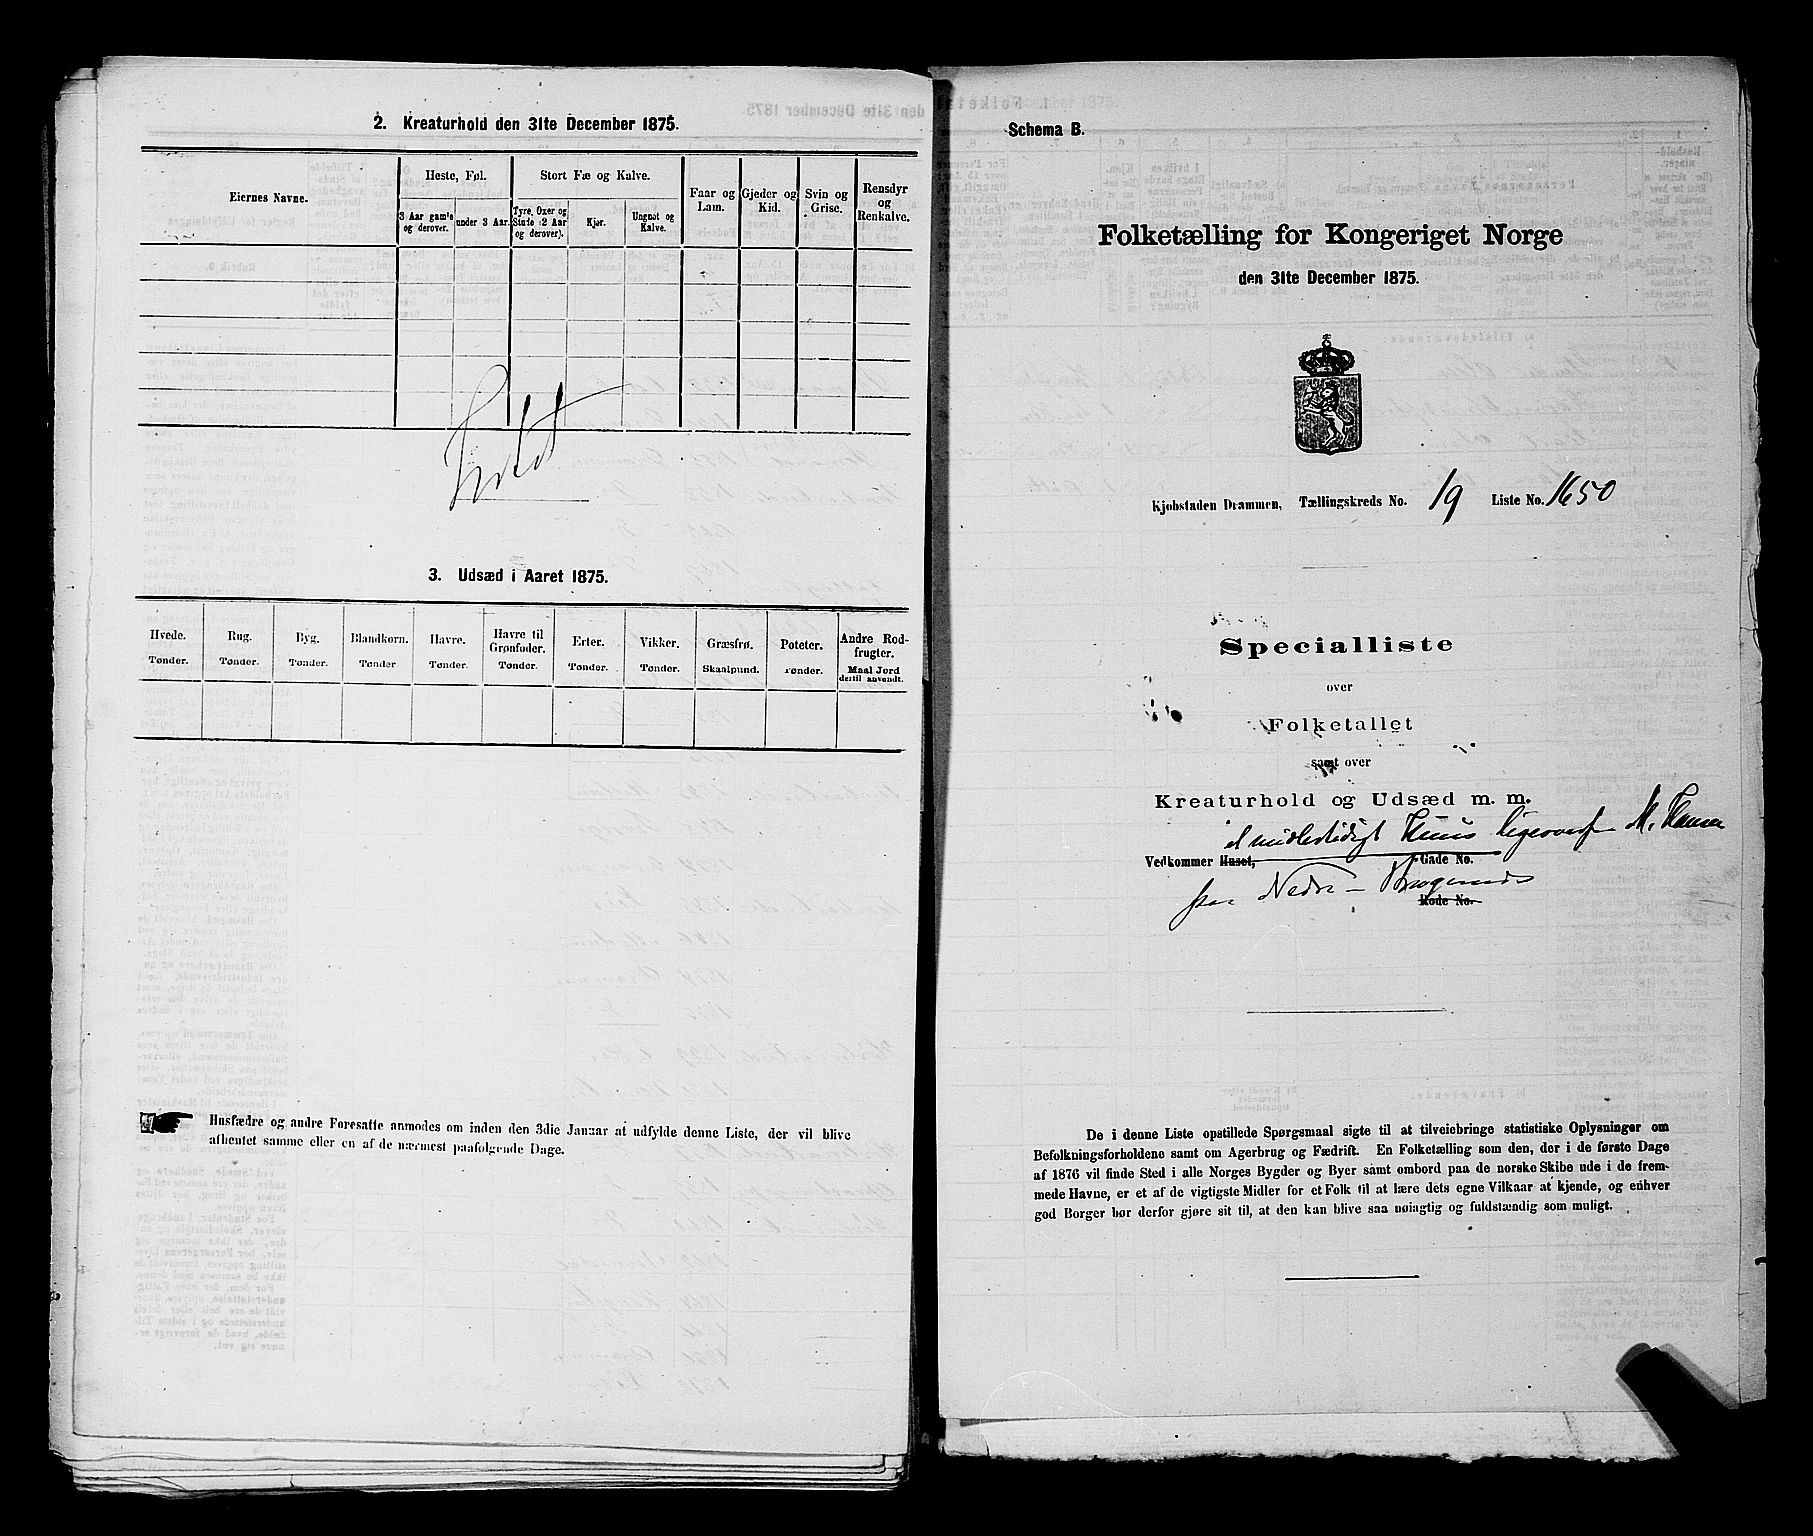 2. Kreaturhold den 31te December 1875.
Eiernes Navne.
Heste, Føl.
Stort Fæ og Kalve.
Faar og Lam.
Gjeder og Kid.
Svin og Grise.
Rensdyr og Renkalve.
3 Aar gamle og derover.
under 3 Aar.
Tyre, Oxer og Stude (2 Aar og derover).
Kjør.
Ungnøt og Kalve.
3. Udsæd i Aaret 1875.
Hvede. Rug. Byg. Blandkorn. Havre. Havre til Grønfoder. Erter. Vikker. Græsfrø. Poteter. Andre Rodfrugter.
Tønder. Tønder. Tønder. Tønder Tønder. Tønder. Tønder. Tønder. Skaalpund. Tønder. Maal Jord dertil anvendt.
Husfædre og andre Foresatte anmodes om inden den 3die Januar at udfylde denne Liste, der vil blive
afhentet samme eller en af de nærmest paafølgende Dage.
Schema B.
Folketælling for Kongeriget Norge
den 31te December 1875.
Kjøbstaden Drammen, Tællingskreds No. 19 Liste No. 1650
Specialliste
over
Folketallet
samt over
Kreaturhold og Udsæd m. m.
et midlertidigt Huus ligeoverf M. Hansen
Vedkommer Huset, Gade No.
paa Nedre-
Rode No.
De i denne Liste opstillede Spørgsmaal sigte til at tilveiebringe statistiske Oplysninger om
Befolkningsforholdene samt om Agerbrug og Fædrift. En Folketælling som den, der i de første Dage
af 1876 vil finde Sted i alle Norges Bygder og Byer samt ombord paa de norske Skibe ude i de frem-
mede Havne, er et af de vigtigste Midler for et Folk til at lære dets egne Vilkaar at kjende, og enhver
god Borger bør derfor gjøre sit til, at den kan blive saa nøiagtig og fuldstændig som muligt.